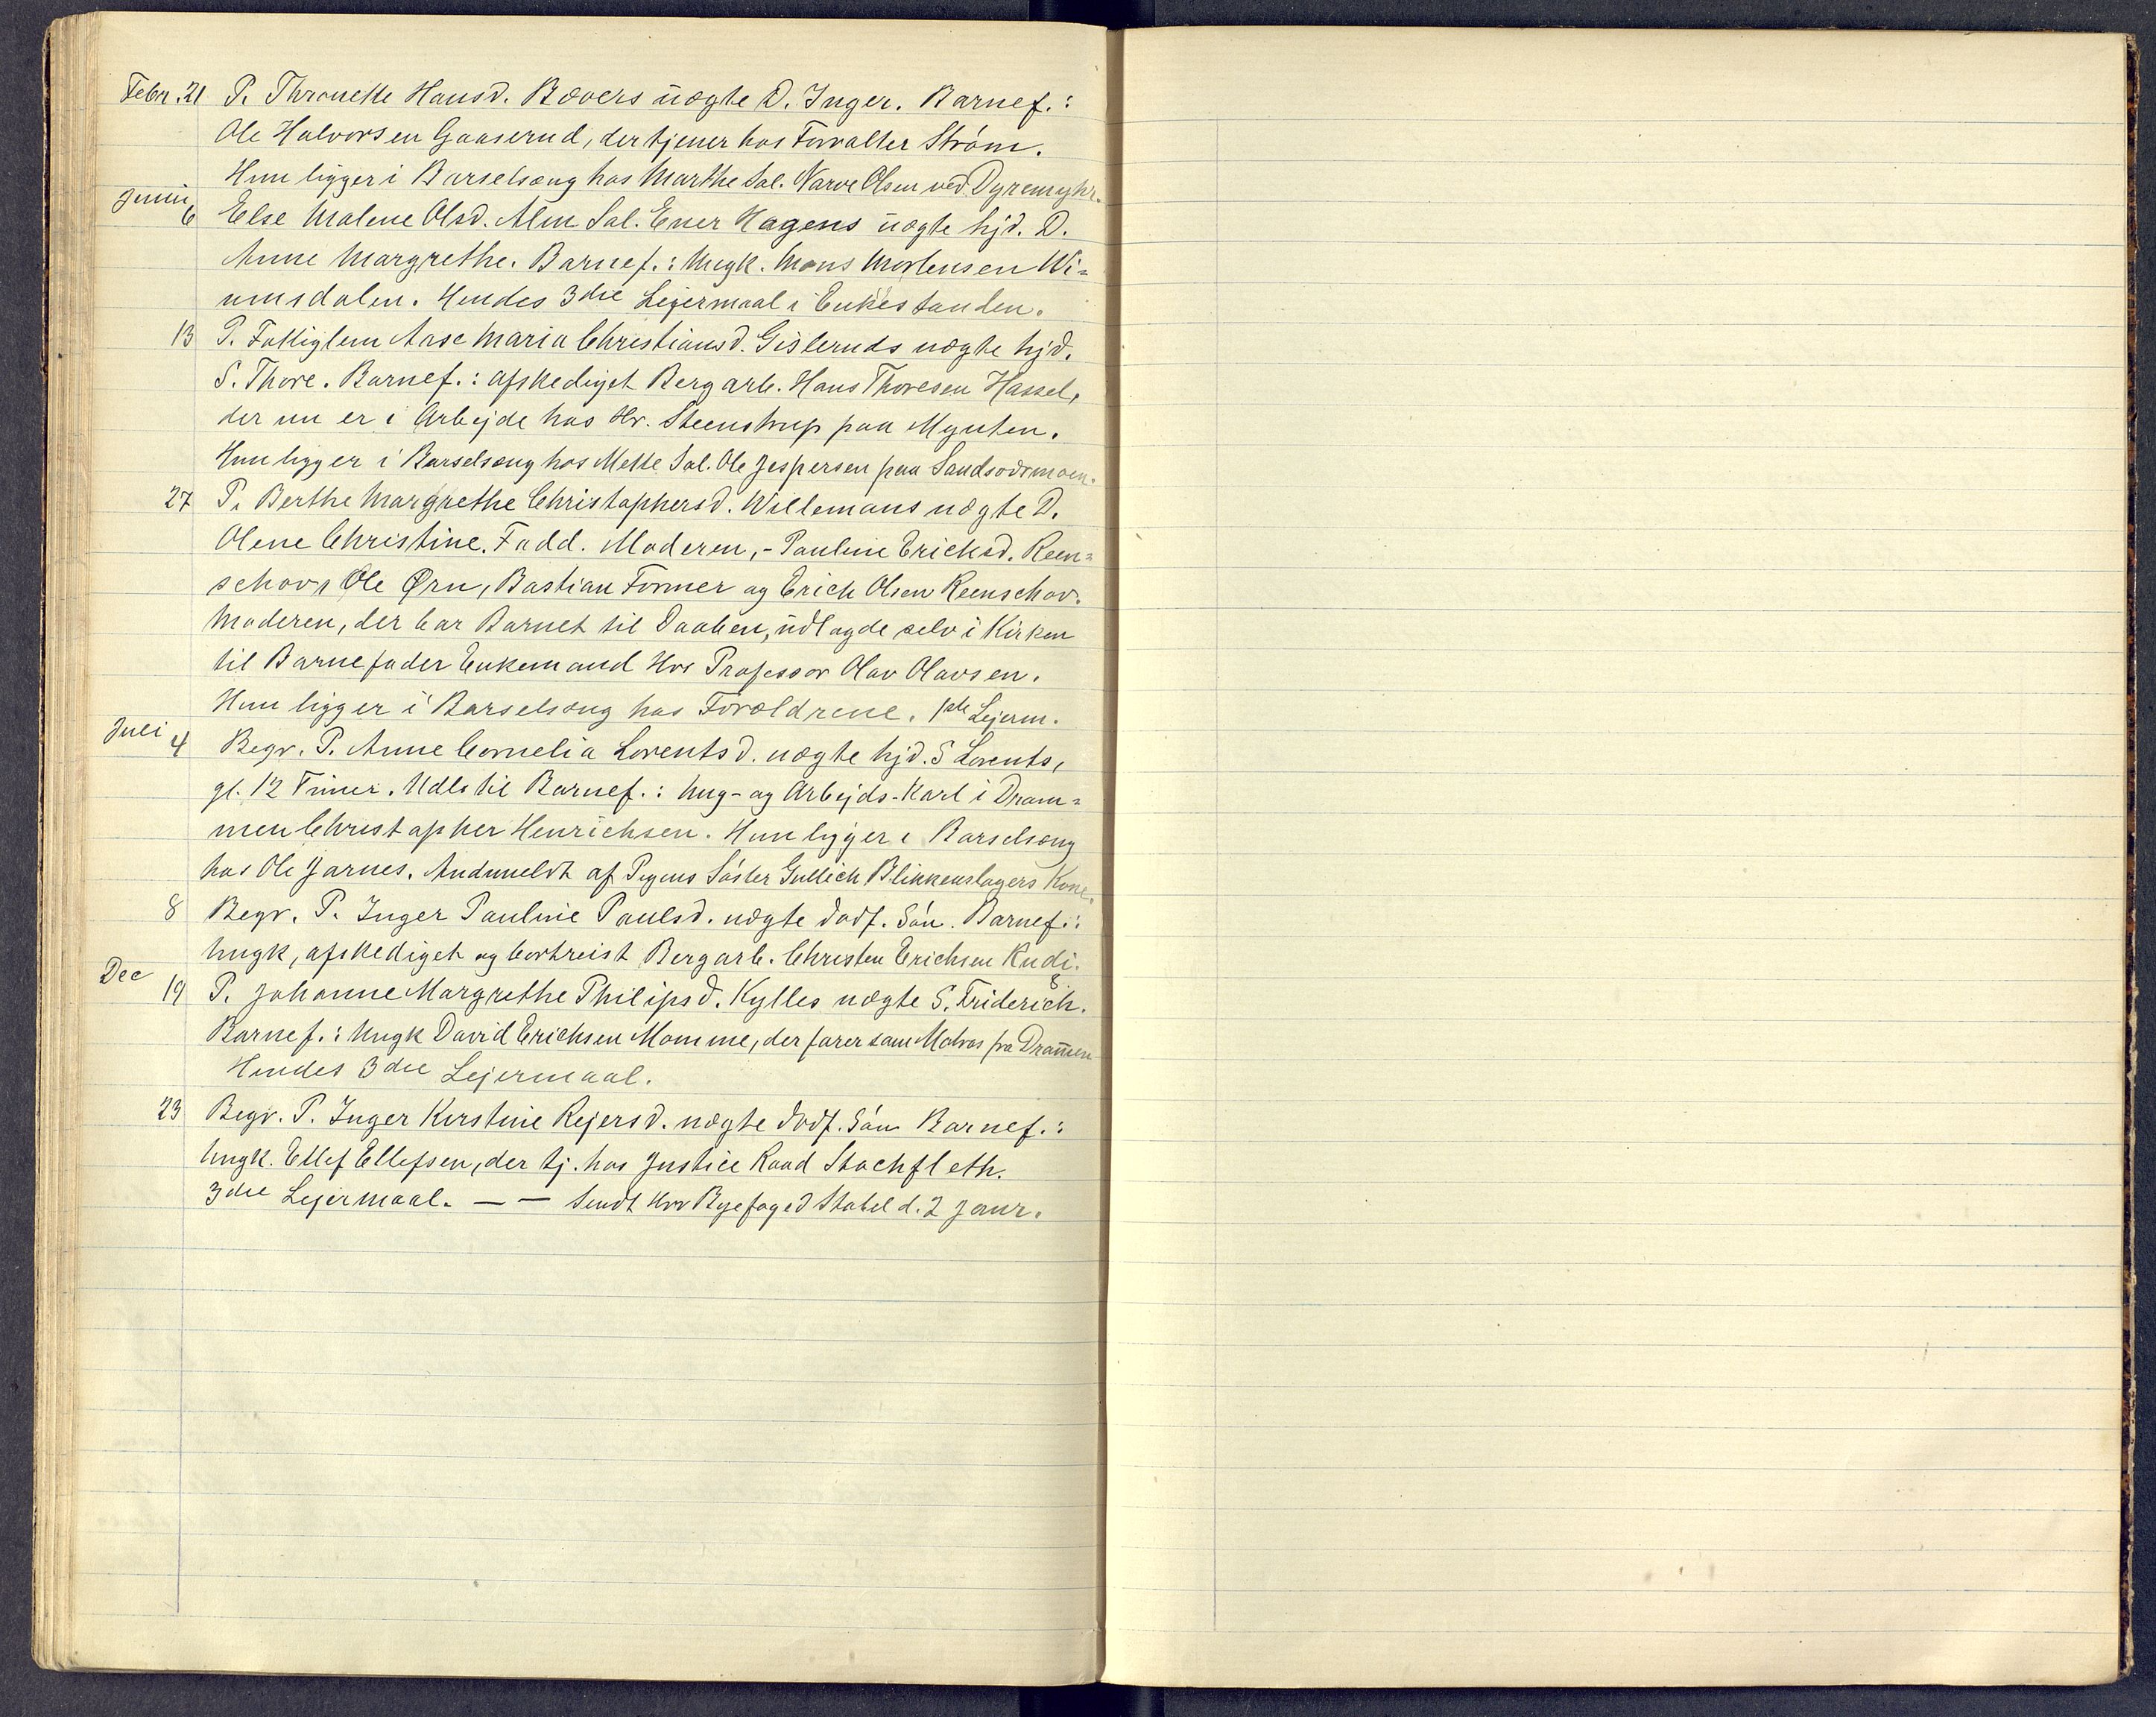 Febr. 21 P. Thronette Hansd. Bævers uægte D. Inger. Barnef.:
Ole Halvorsen Gaaserud, der tjener hos Forvalter Strøm.
Hun ligger i Barselsæng hos Marthe Sal. Narve Olsen ved Dyremyhr.
Junii 6 Else Malene Olsd. Alm Sal. Ener Hagens uægte hjd. D.
Anne Margrethe. Barnef.: Ungk. Mons Mortensen Wi=
umsdalen. Hendes 3die Lejermaal i Enkestanden.
13 P. Fattiglem Aase Maria Christiansd. Gisleruds uægte hjd.
S. Thore. Barnef.: afskediget Bergarb. Hans Thoresen Hassel,
der nu er i Arbejde hos Hr. Steenstrup paa Mynten.
Hun ligger i Barselsæng hos Mette Sal. Ole Jespersen paa Sandsværmoen.
27 P. Berthe Margrethe Christophersd. Willemans uægte D.
Olene Christine. Fadd. Moderen, - Pauline Ericksd. Reen=
schov, Ole Ørn, Bastian Former og Erich Olsen Reenschov.
Moderen, der bar Barnet til Daaben, udlagde selv i Kirken
til Barnefader Enkemand Hrr Professor Olav Olavsen.
Hun ligger i Barselsæng hos Forældrene. 1ste Lejerm.
Juli 4 Begr. P. Anne Cornelia Lorentsd. uægte hjd. S Lorents,
gl. 12 Timer. Udls til Barnef.: Ung- og Arbejds-Karl i Dram=
men Christopher Henrichsen. Hun ligger i Barselsæng
hos Ole Jarnes. Andmeldt af Pigens Søster Gullich Blikkenslagers Kone.
8 Begr. P. Inger Pauline Paulsd. uægte dødf. Søn. Barnef.:
Ungk, afskediget og bortreist Bergarb. Christen Erichsen Rudi.
Dec 19 P. Johanne Margrethe Philipsd. Kylles uægte S. Friderich.
Barnef.: Ungk David Erichsen Momme, der farer som Matros fra Dram̄en
Hendes 3die Lejermaal.
23 Begr. P. Inger Kirstine Rejersd. uægte dødf. Søn Barnef.:
Ungk. Ellef Ellefsen, der tj. hos Justice Raad Stochfleth.
3die Lejermaal. — — Sendt Hrr Byefoged Stabel d. 2 Janr.